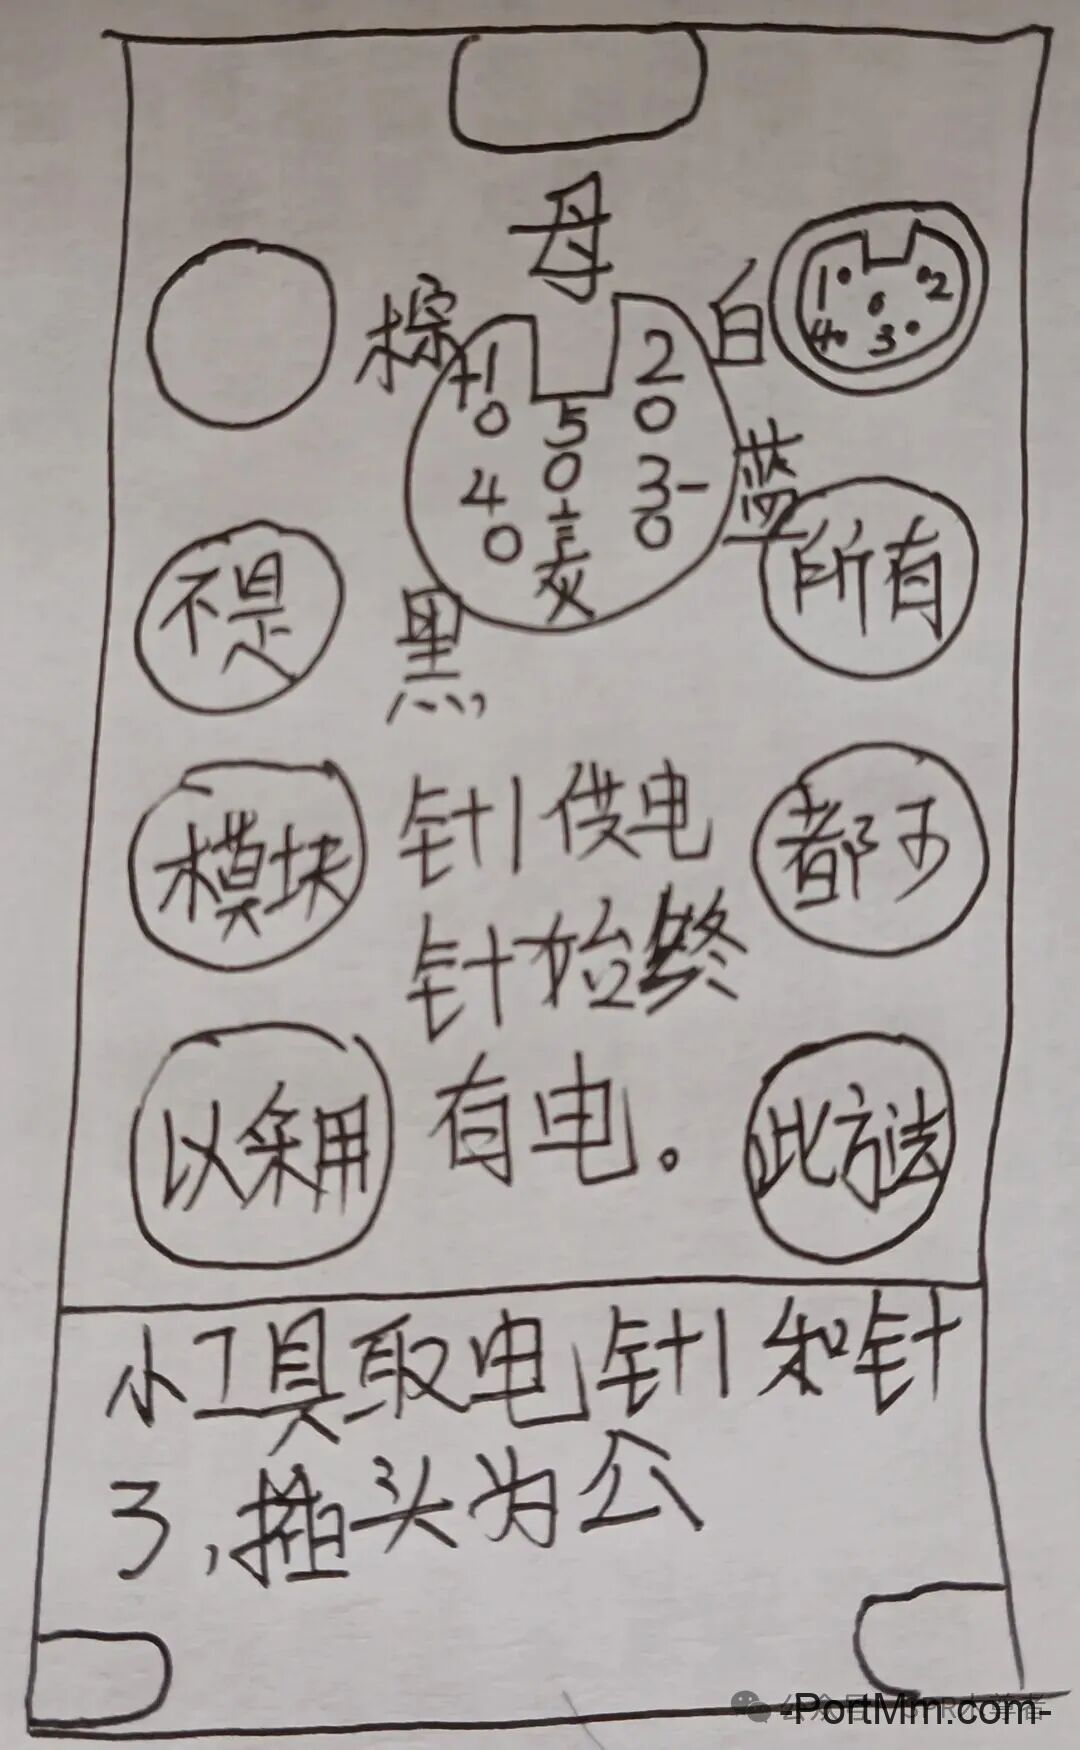 母
棕
白
1 2
5
4 3
+1 2
5
4 3-
言义
蓝
黑
不是
所有
模块
针1供电
都可
针始终
以采用
有电。
此方法
小工具取电针1和针
3,插头为公
公众号
-PortMm.com-